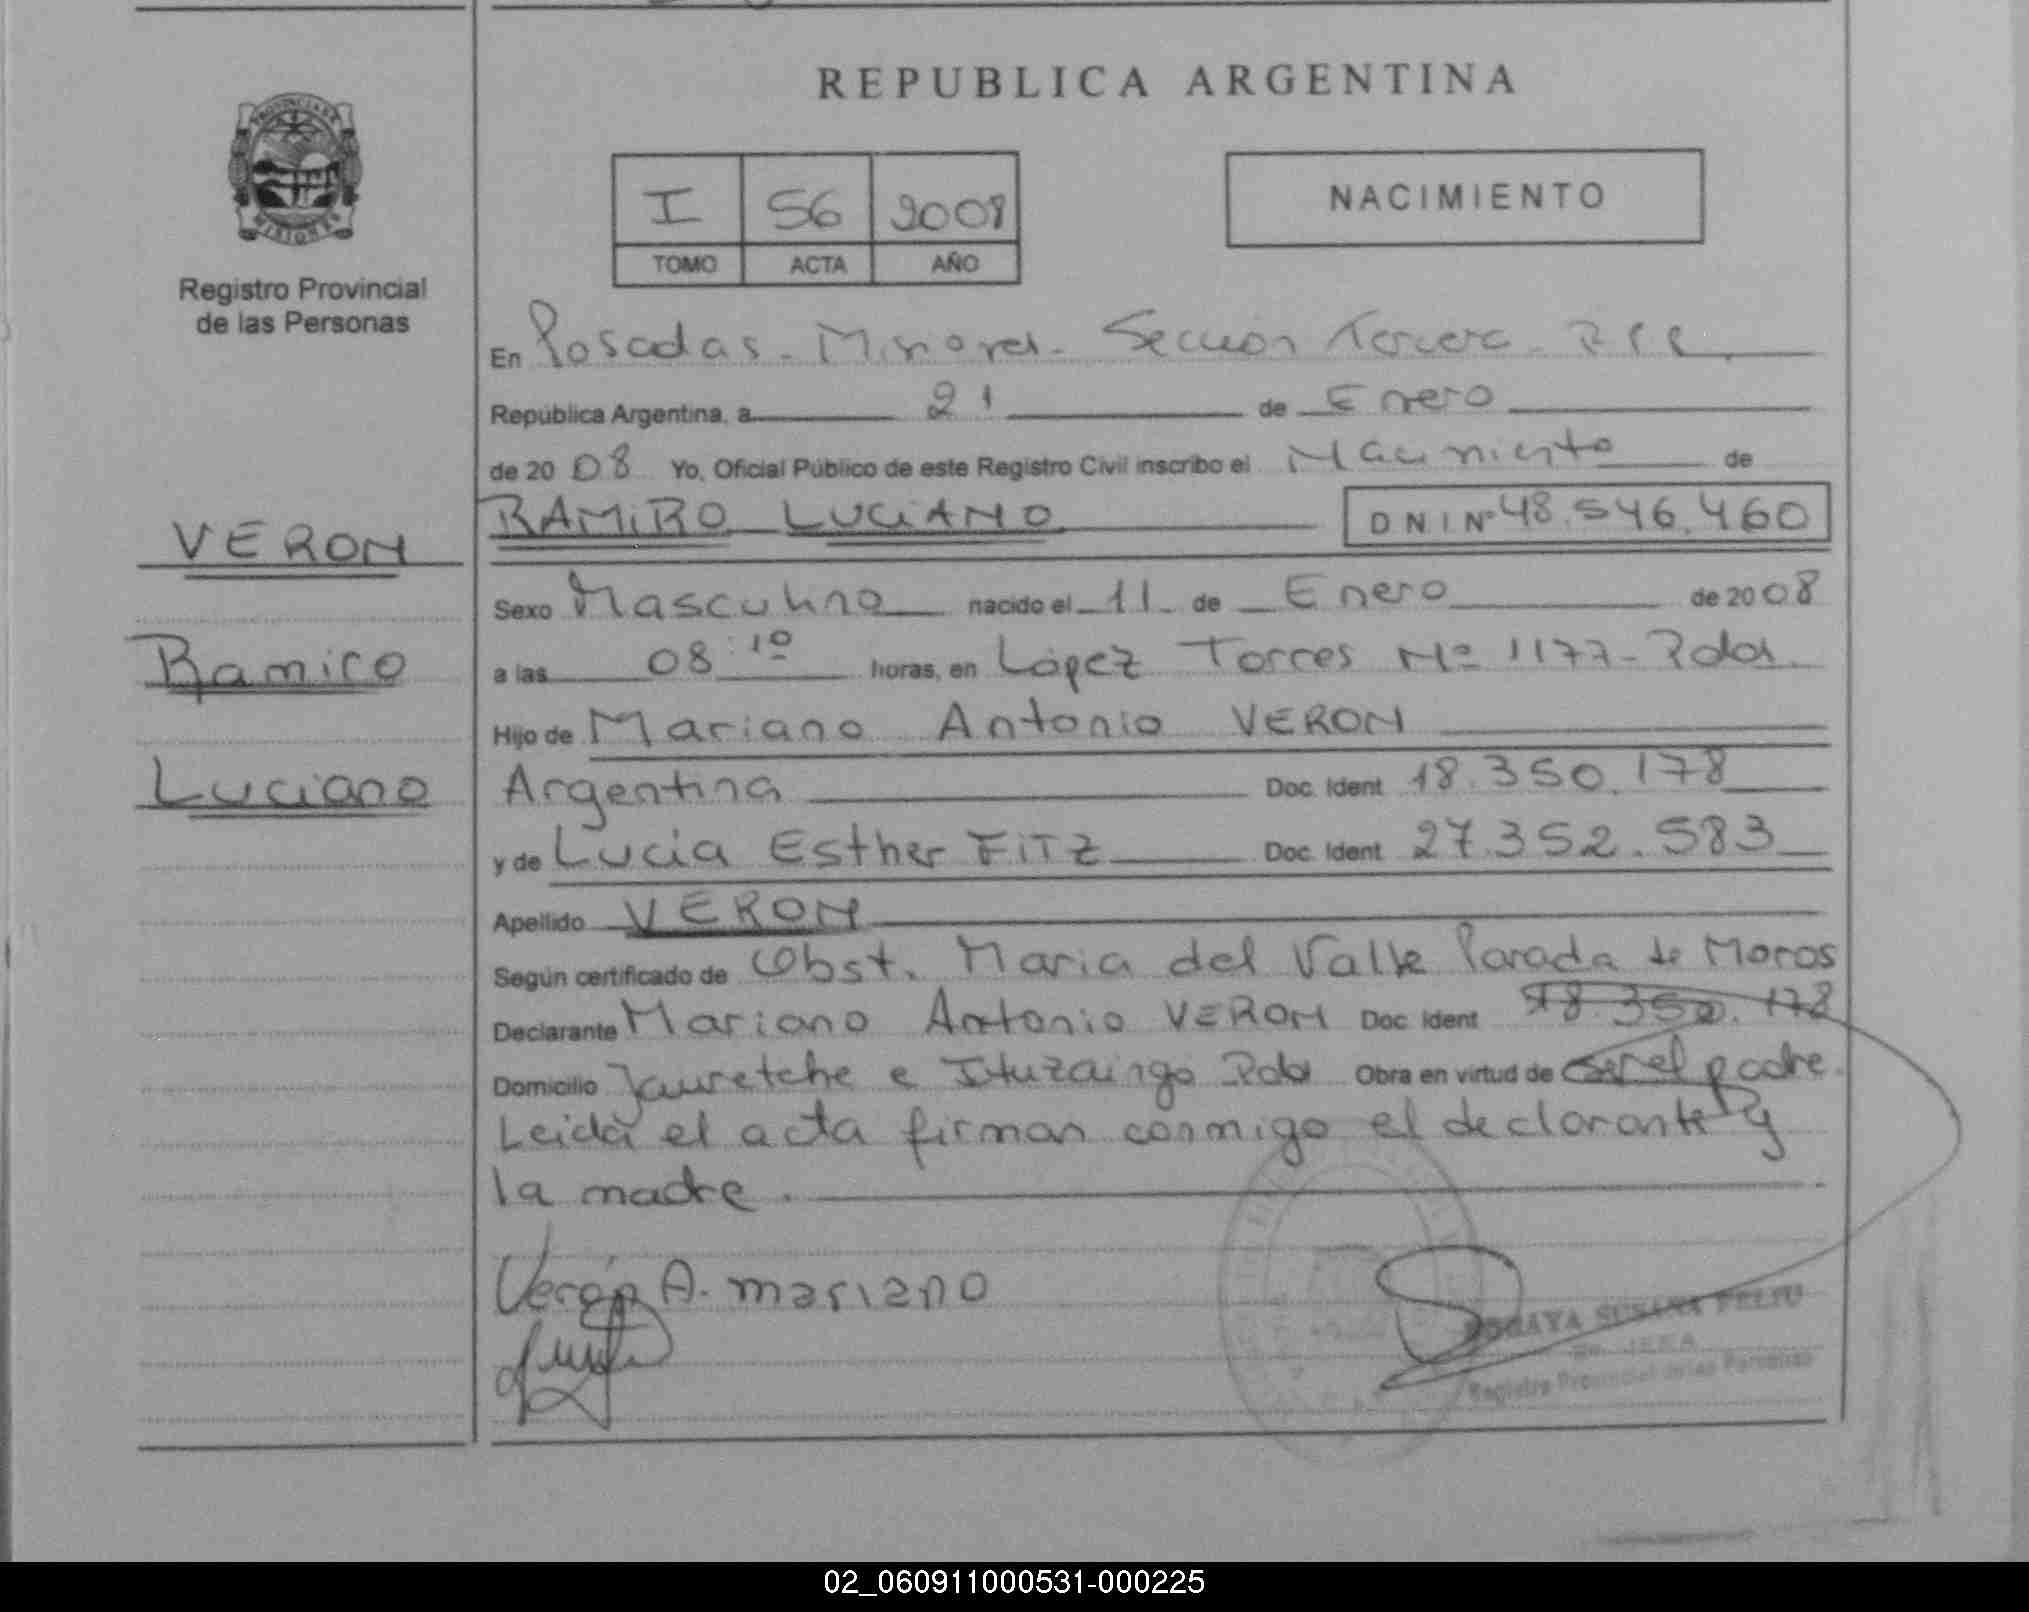 REPUBLICA ARGENTINA
PROVINCIA DE
MISIONES
Registro Provincial
de las Personas
I 56 2008
TOMO ACTA AÑO
NACIMIENTO
En Posadas - Misiones - Sección Tercera -
República Argentina, a 21 de Enero
de 2008 Yo, Oficial Público de este Registro Civil inscribo el Nacimiento de
VERON
RAMIRO LUCIANO DNI Nº 48.546.460
Sexo Masculino nacido el 11 de Enero de 2008
Ramiro
a las 08:10 horas, en López Torres Nº 1177 - Pdas.
Hijo de Mariano Antonio VERON
Luciano
Argentina Doc. Ident 18.350.178
y de Lucia Esther FITZ Doc. Ident 27.352.583
Apellido VERON
Según certificado de Obst. Maria del Valle Parada de Moros
Declarante Mariano Antonio VERON Doc. Ident 18.350.178
Domicilio Jauretche e Ituzaingo Pdas Obra en virtud de ser el padre.
Leida el acta firman conmigo el declarante y
la madre.
Verón A. mariano
SUSANA FELIU
Registro Provincial de las Personas
02_060911000531-000225